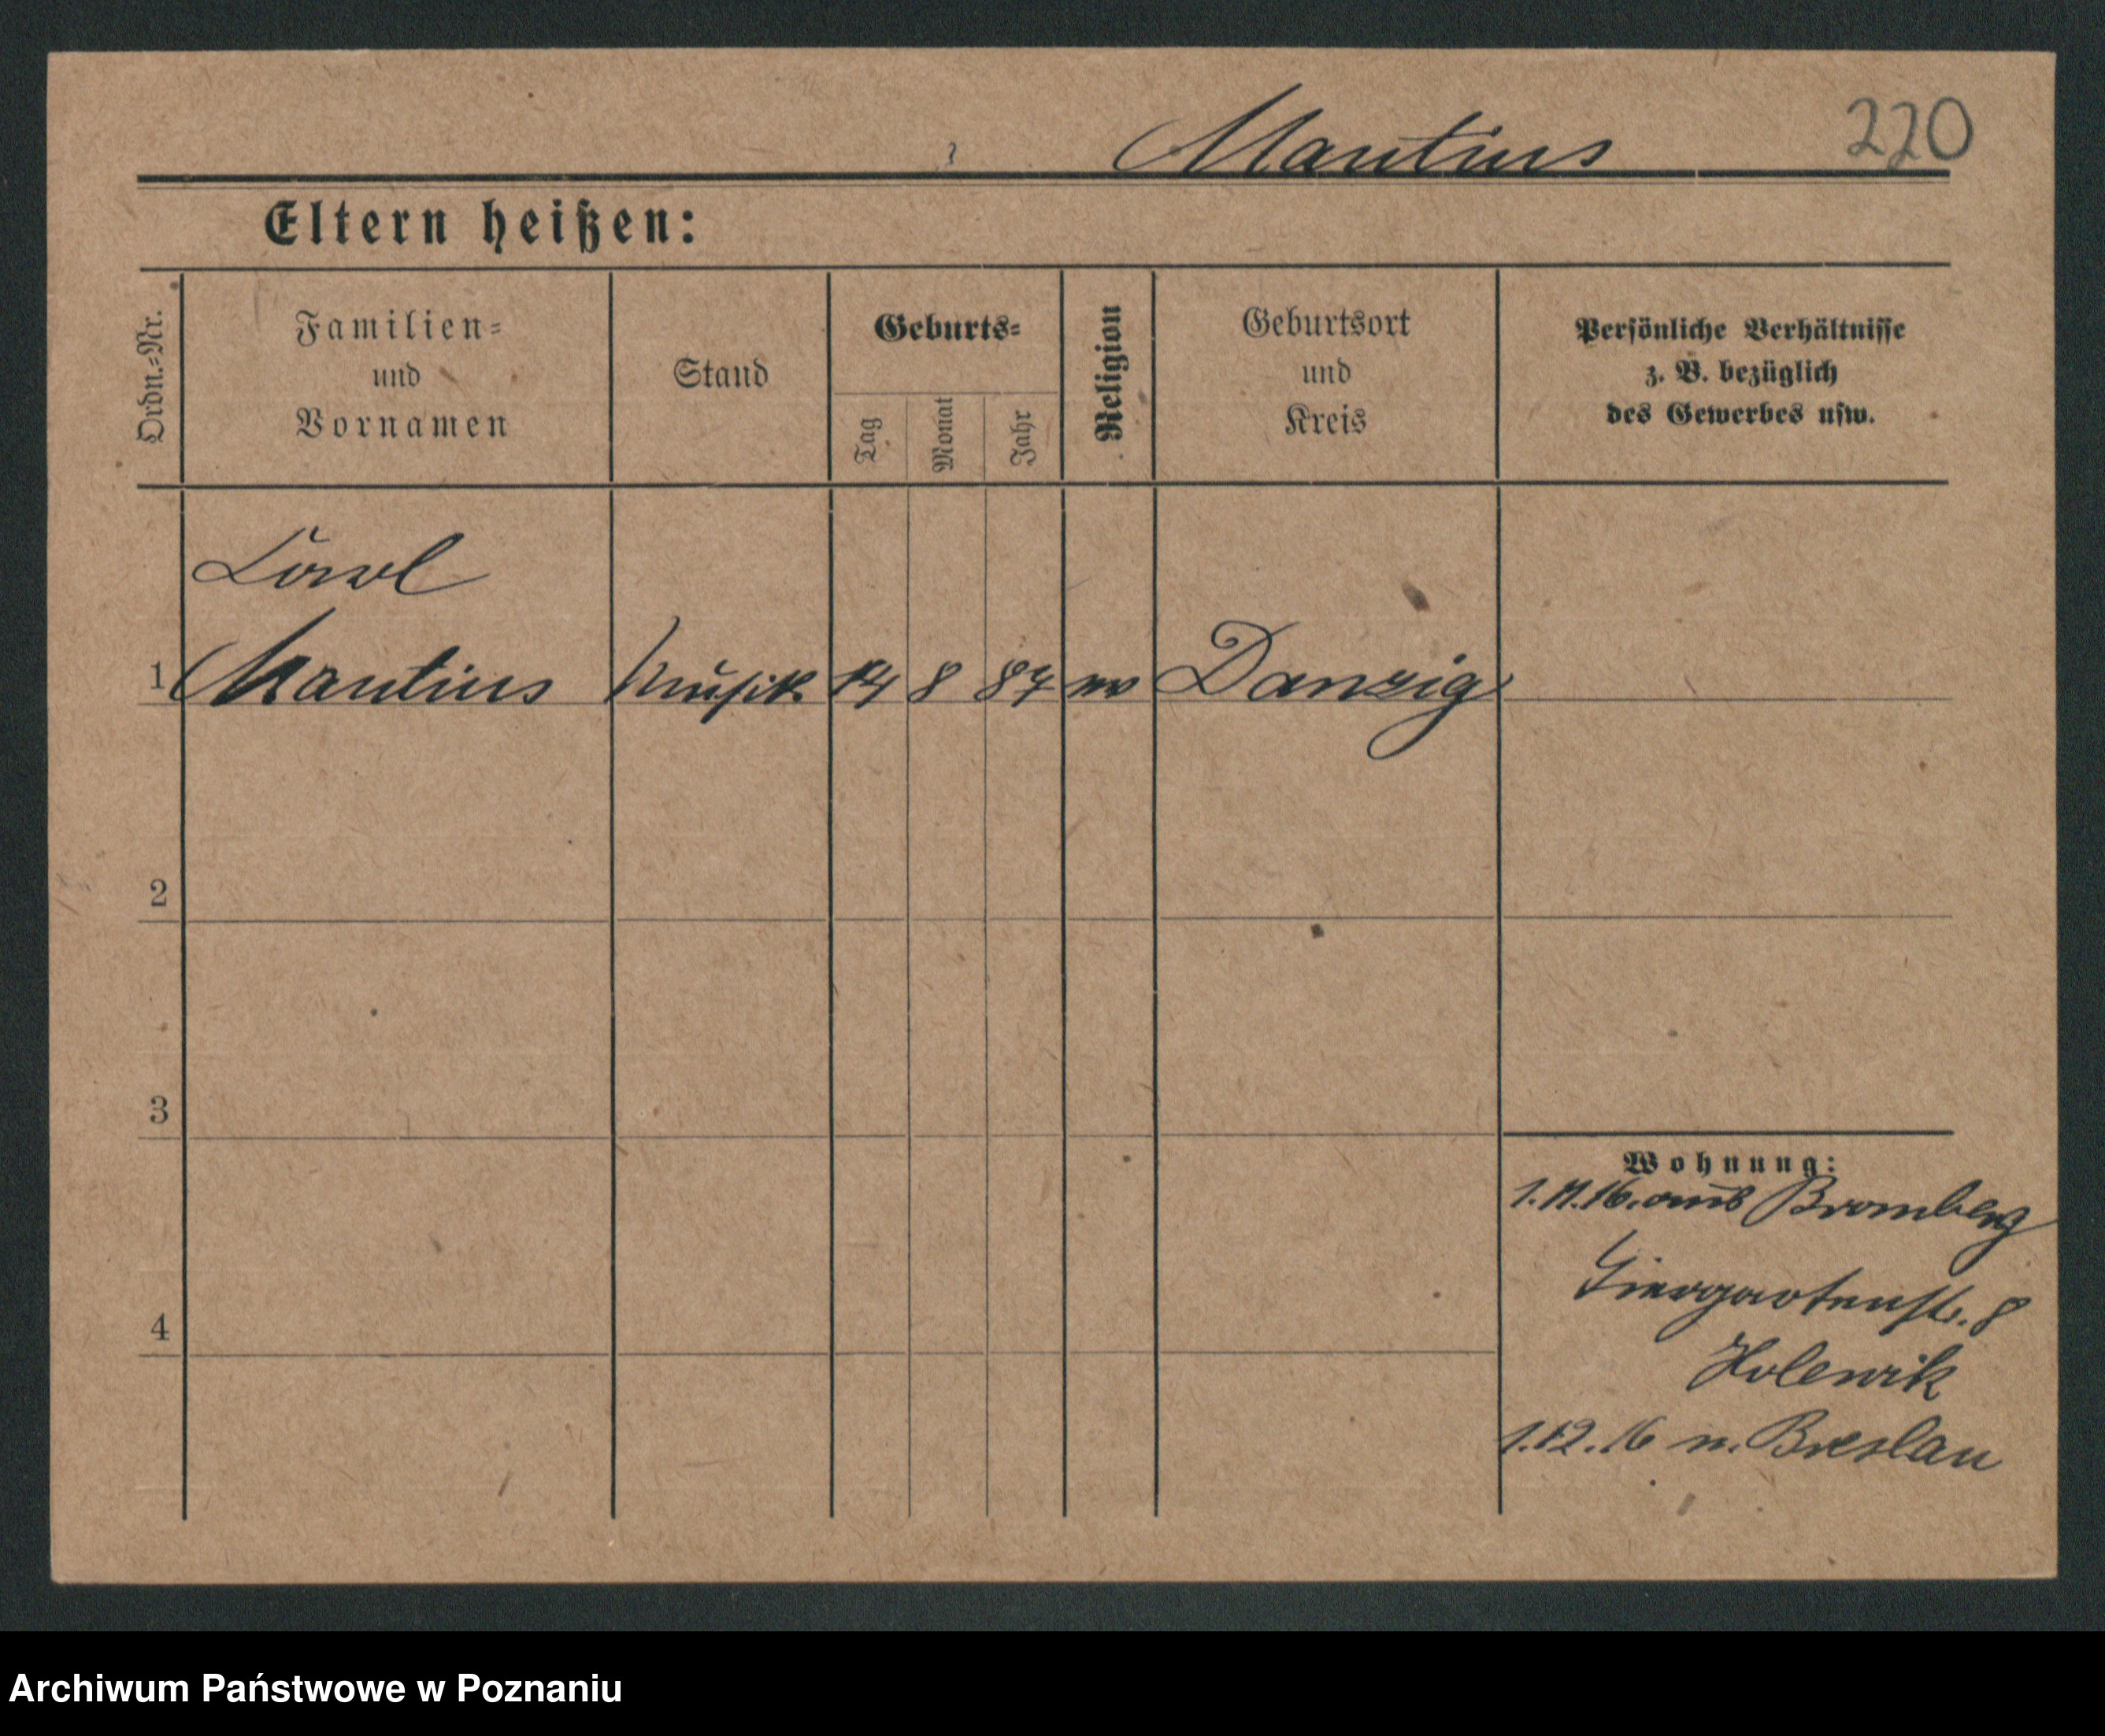 Mantius 220
Eltern heißen:
Ordn.-Nr.
Familien-
und
Vornamen
Stand
Geburts-
Tag
Monat
Jahr
Religion
Geburtsort
und
Kreis
Persönliche Verhältnisse
z. B. bezüglich
des Gewerbes usw.
1 Mantius Musik. 14 8 87 Danzig
2
3
Wohnung:
1.11.16. aus Bromberg
4
Tiergartenstr. 8
1.12.16 n. Breslau
Archiwum Państwowe w Poznaniu